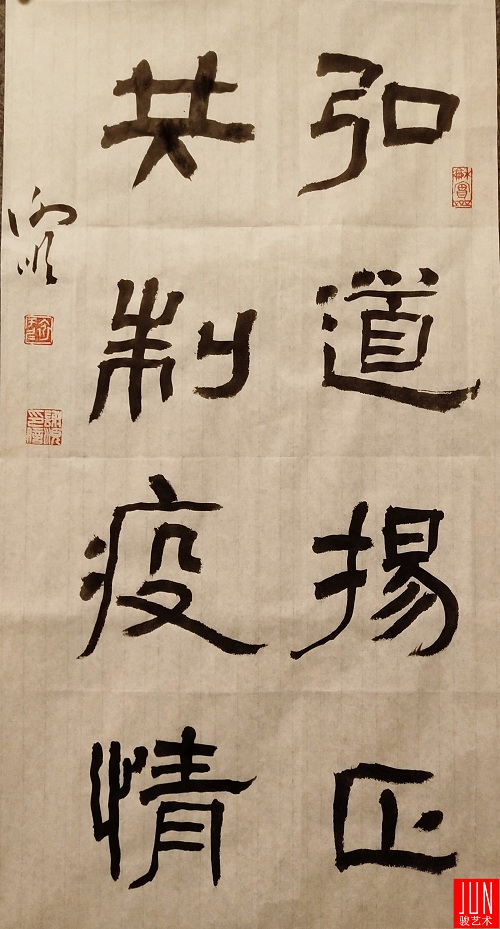 弘道揚正
共制疫情
JUN
骏艺术